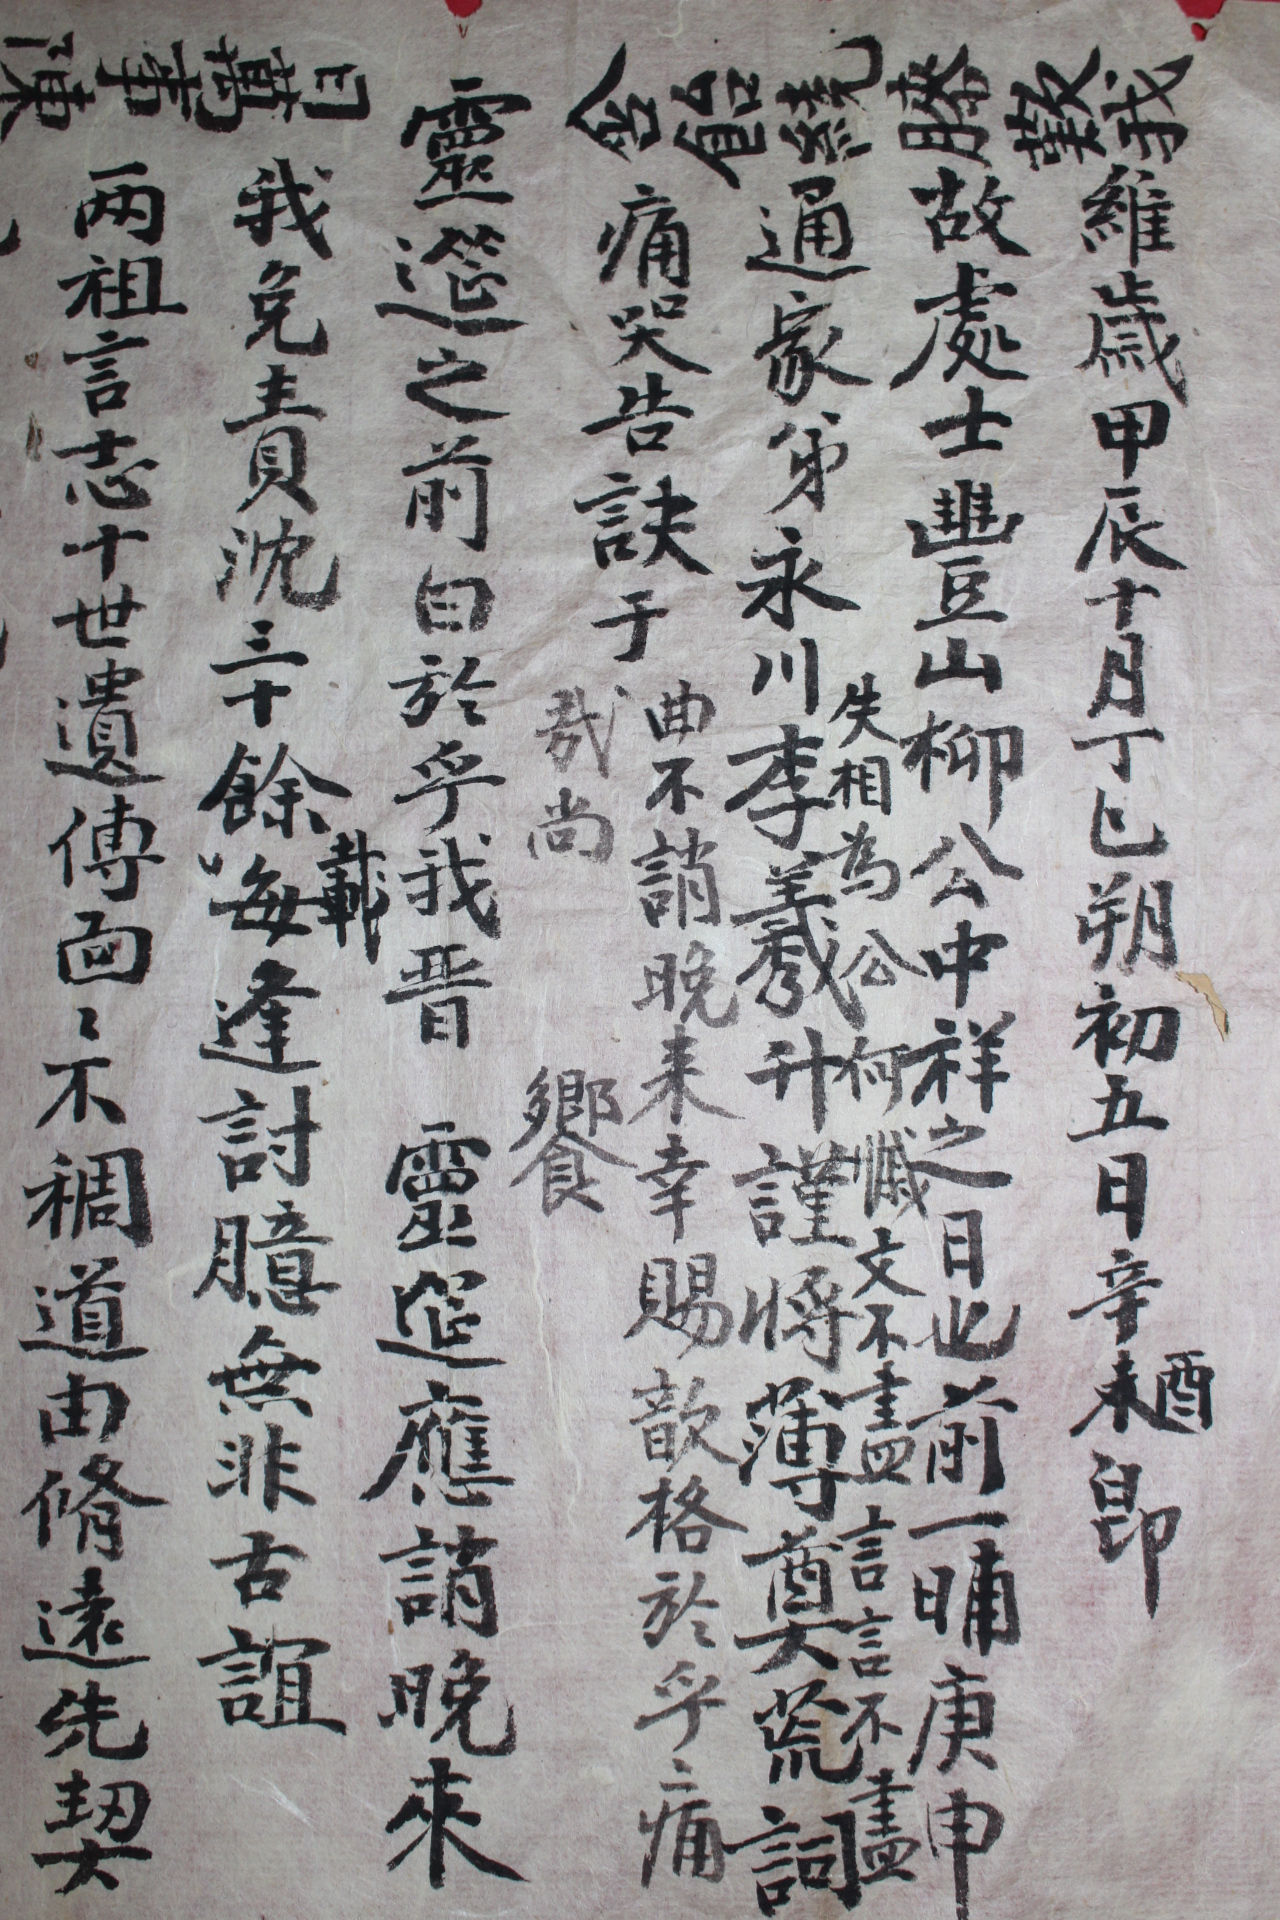 維歲甲辰十月丁巳朔初五日辛酉未卽
故處士豐山柳公中祥之日也前一晡庚申
通家弟永川李羲升謹將薄奠荒詞
痛哭告訣于
靈筵之前曰於乎我晋 靈筵應誚晚來
我免責沈三十餘載每逢討臆無非古誼
兩祖言志十世遺傳面〻不稠道由脩遠先契
失相為公何慽文不盡言言不盡
曲不誚晚來幸賜歆格於乎痛
哉尚 饗
我
歎
日
萬
事
陳